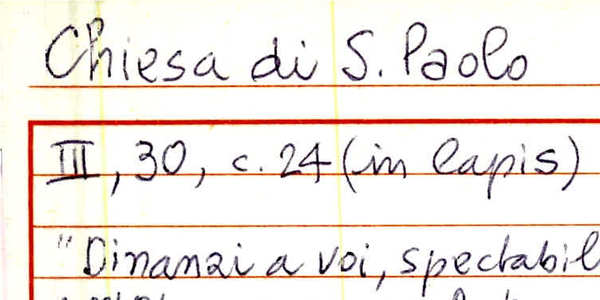 Chiesa di S. Paolo
III, 30, c. 24 (in lapis)
"Dinanzi a voi, spectabil